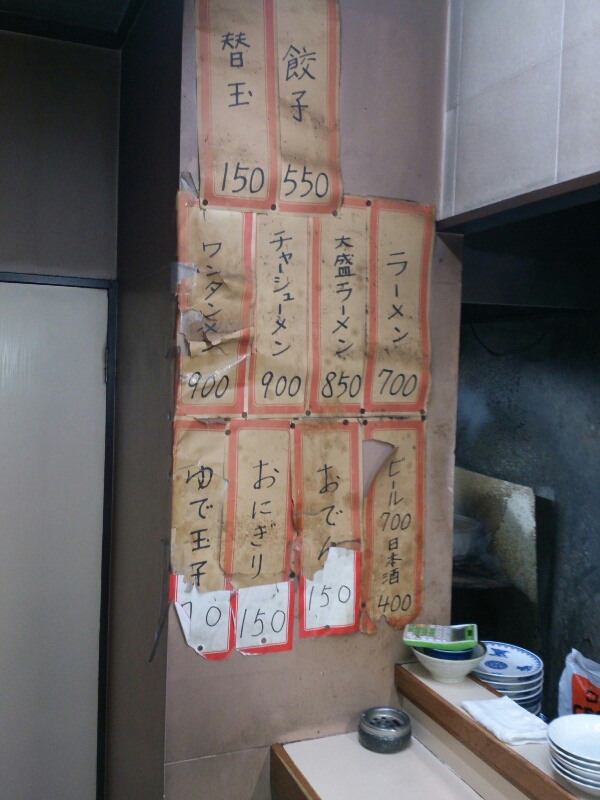 餃子
550
替玉
150
ラーメン
700
大盛ラーメン
850
チャーシューメン
900
ワンタンメン
900
ビール
700
日本酒
400
おでん
150
おにぎり
150
ゆで玉子
70